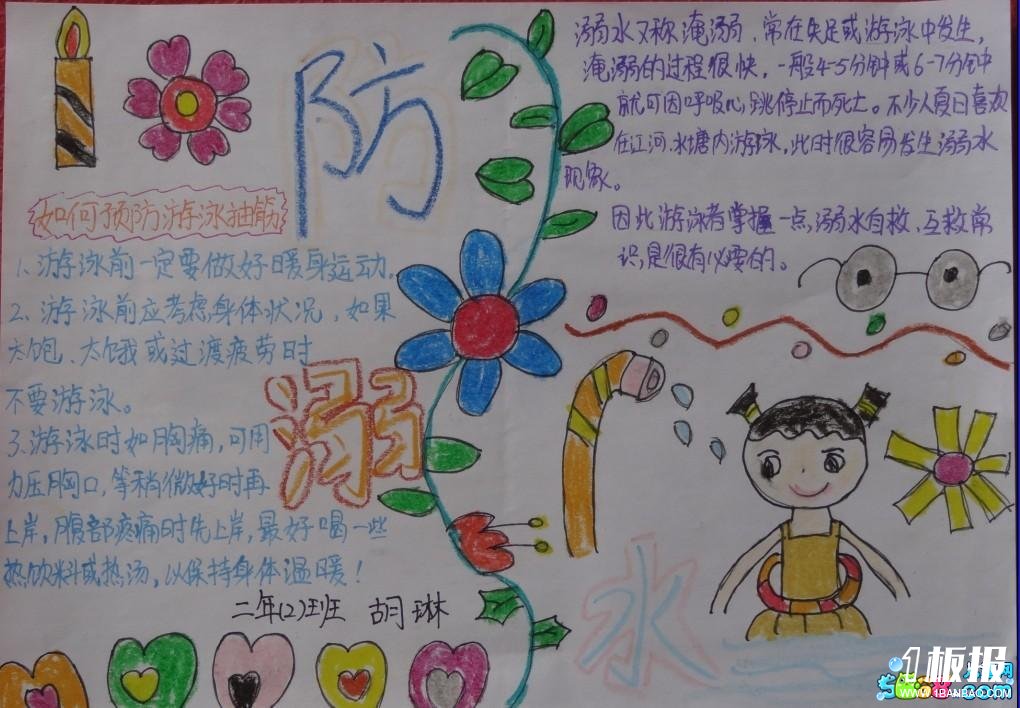 防
溺
水
溺水又称淹溺、常在失足或游泳中发生,
淹溺的过程很快,一般4-5分钟或6-7分钟
就可因呼吸心跳停止而死亡。不少人夏日喜欢
在江河、水塘内游泳,此时很容易发生溺水
现象。
因此游泳者掌握一点,溺水自救、互救常
识,是很有必要的。
如何预防游泳抽筋
1、游泳前一定要做好暖身运动。
2、游泳前应考虑身体状况,如果
太饱、太饿或过渡疲劳时
不要游泳。
3、游泳时如胸痛,可用
力压胸口,等稍微好时再
上岸,腹部疼痛时先上岸,最好喝一些
热饮料或热汤,以保持身体温暖!
二年(2)班 胡琳
1板报
WWW.1BANBAO.COM